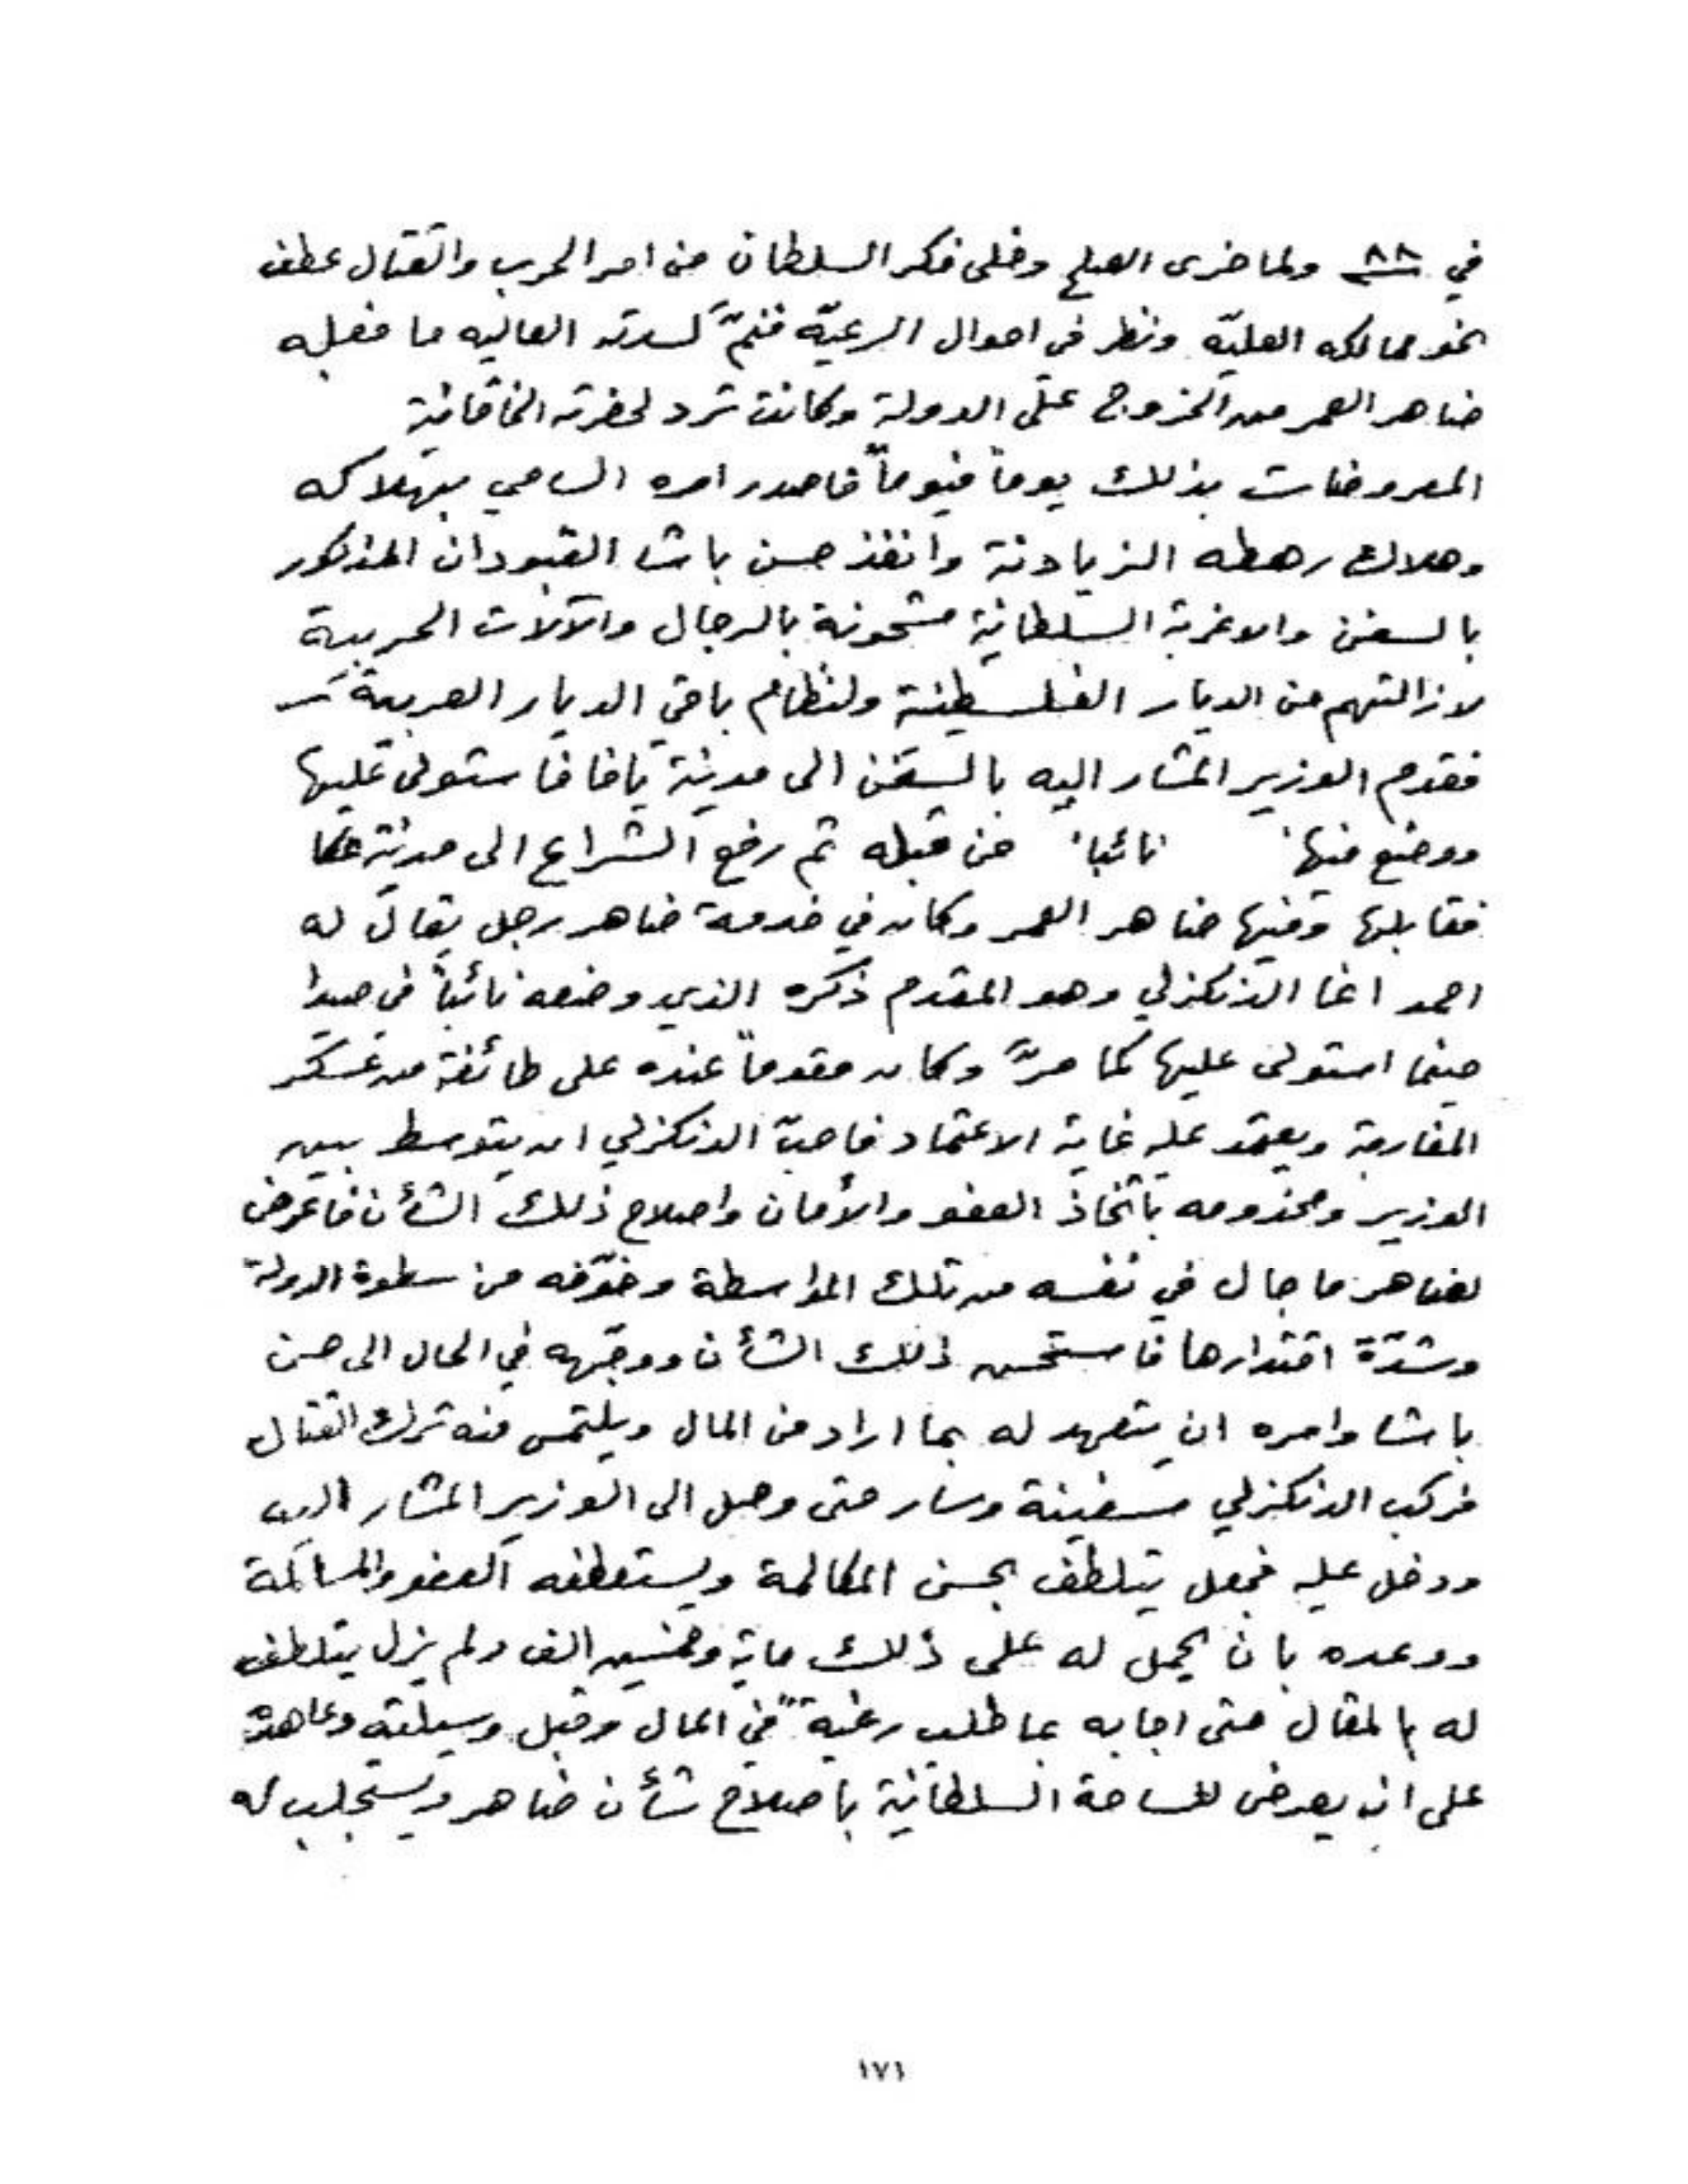 في ٨٨ سنة ولما جرى الصلح وخلى فكر السلطان من امر الحرب والقتال عطف
نحو ممالكه العليّة ونظر في احوال الرعيّة فنمّ لسدته العاليه ما فعله
ضاهر العمر من الخروج على الدولة وكانت ترد لحضرته الخاقانية
المعروضات بذلك يوماً فيوماً فاصدر امره السامي بهلاكه
وهلاك رهطه الزيادنة وانفذ حسن باشا القبودان المذكور
بالسفن والاغربة السلطانية مشحونة بالرجال والآلات الحربية
لازالتهم من الديار الفلسطينة ولنظام باقي الديار العربية
فقدم الوزير المشار اليه بالسفن الى مدينة يافا فاستولى عليها
ووضع فيها نائباً من قبله ثم رفع الشراع الى مدينة عكا
فقابلها وفيها ضاهر العمر وكان في خدمة ضاهر رجل يقال له
احمد اغا الدنكزلي وهو المقدم ذكره الذي وضعه نائباً في صيدا
حينما استولى عليها كما مرّ وكان مقدوماً عنده على طائفة من عسكر
المغاربة ويعتمد عليه غاية الاعتماد فاحبّ الدنكزلي ان يتوسط بين
الوزير ومخدومه باتخاذ العفو والأمان واصلاح ذلك الشأن فاعرض
لضاهر ما جال في نفسه من تلك الواسطة وخوّفه من سطوة الدولة
وشدّة اقتدارها فاستحسن ذلك الشأن ووجّهه في الحال الى حسن
باشا وامره ان يتعهد له بما اراد من المال ويلتمس منه ترك القتال
فركب الدنكزلي سفينة وسار حتى وصل الى الوزير المشار اليه
ودخل عليه فجعل يتلطف بحسن المكالمة ويستعطفه العفو والمسالمة
ووعده بان يحمل له على ذلك ماية وخمسين الف ولم يزل يتلطف
له بالمقال حتى اجابه بما طلب رغبةً في المال وقبل وسيلته وعاهده
على ان يعرض للساحة السلطانية باصلاح شأن ضاهر ويستجلب له
١٧١